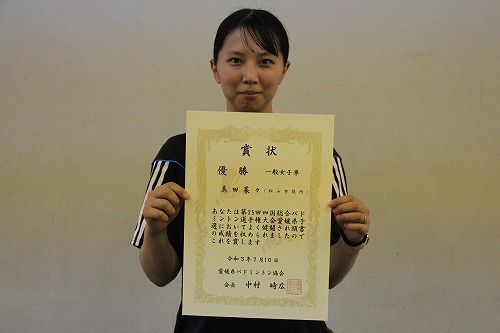 賞状
優勝 一般女子単
真田菜々(松山市役所)
あなたは第25回四国総合バド
ミントン選手権大会愛媛県予
選において よく健闘され頭書
の成績を収められましたので
これを賞します
令和3年7月10日
愛媛県バドミントン協会
会長 中村時広